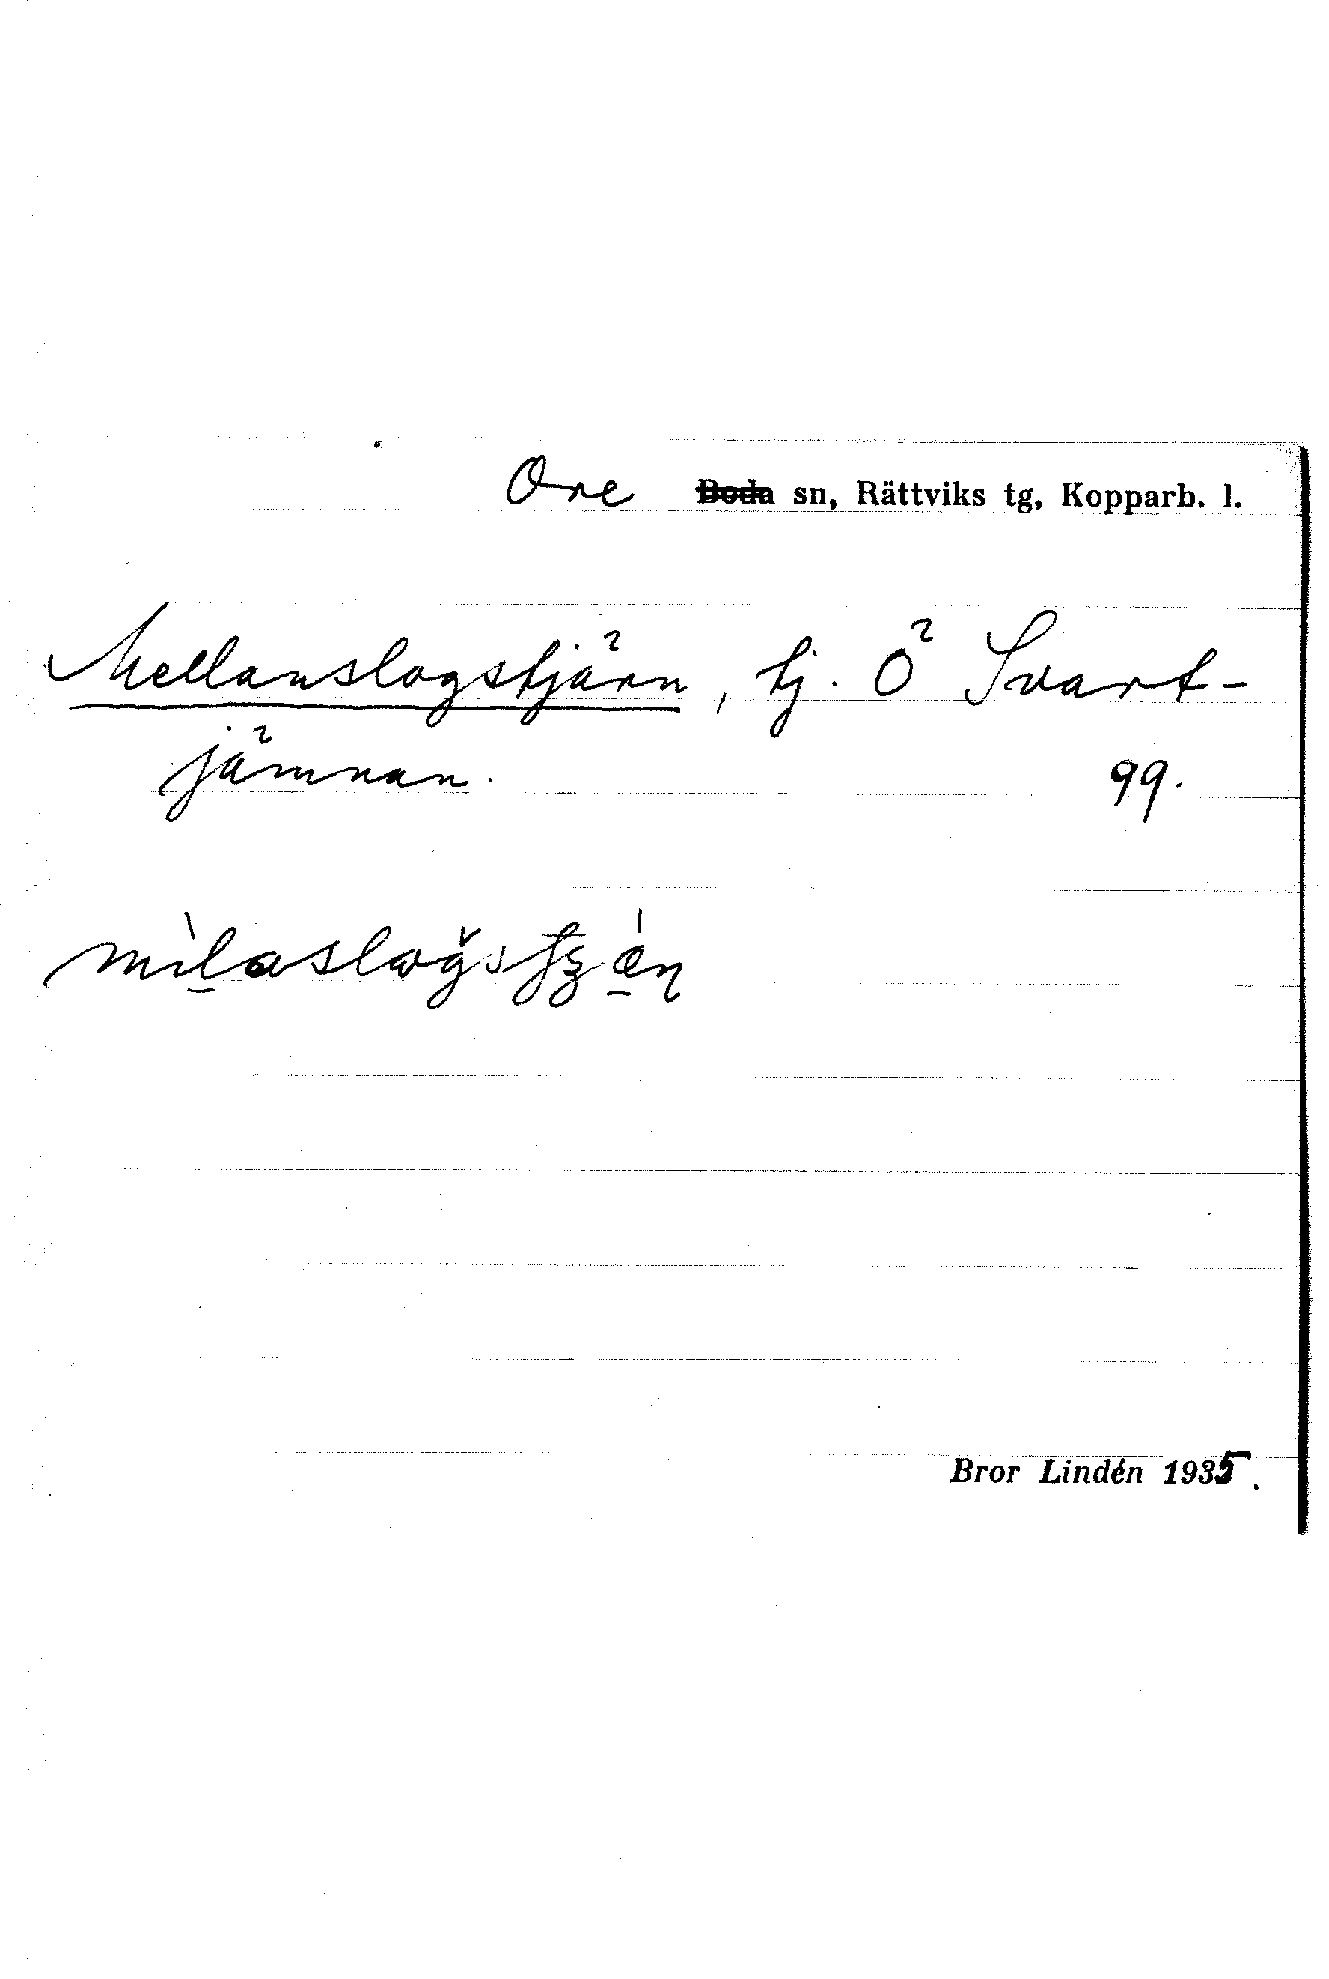 Ore Boda sn, Rättviks tg, Kopparb. l.
Mellanslogstjärn, tj. Ö Svart-
jämnan.
99.
Bror Lindén 1935.